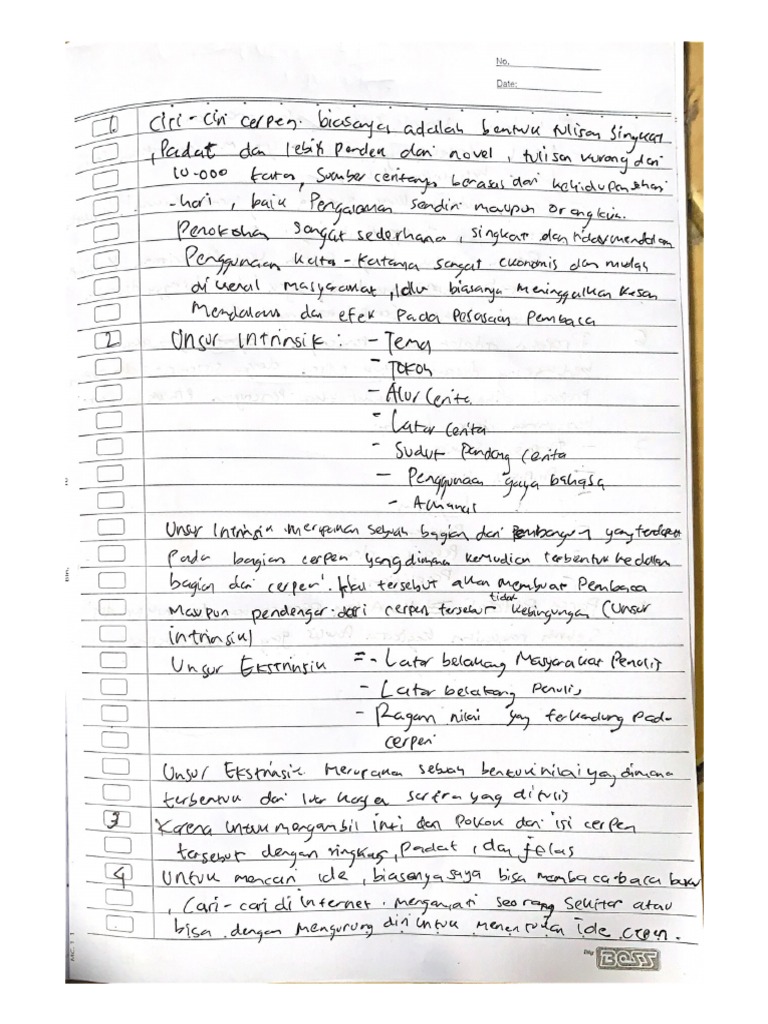 No.
Date:
1. Ciri-Ciri cerpen. biasanya adalah bentuk tulisan singkat
, Padat dan lebih pendek dari novel, tulisan kurang dari
10.000 kata, Sumber ceritanya berasas dari kehidupan sehari
-hari, baik Pengalaman sendiri maupun orang lain.
Penokohan sangat sederhana, singkat dan tidak mendalam
Penggunaan kata-katanya sangat ekonomis dan mudah
dikenal masyarakat, lalu biasanya meninggalkan kesan
Mendalam dan efek pada perasaan Pembaca
2 Unsur Intrinsik : - Tema
- Tokoh
- Alur Cerita
- Latar Cerita
- Sudut Pandang cerita
- Penggunaan gaya bahasa
- Amanat
Unsur Intrinsik merupakan sebuah bagian dari pembangun yang terdapat
pada bagian cerpen yang dimana kemudian terbentuk kedalam
bagian dari cerpen. Hal tersebut akan membuat Pembaca
Maupun pendengar dari cerpen tersebut tidak kebingungan (Unsur
intrinsik)
Unsur Ekstrinsik = - Latar belakang Masyarakat Penulis
- Latar belakang penulis
- Ragam nilai yang terkandung Pada
cerpen
Unsur Ekstrinsik Merupakan sebuah bentuk nilai yang dimana
terbentuk dari luar karya sastra yang ditulis
3 Karena untuk mengambil inti dan Pokok dari isi cerpen
tersebut dengan singkat, Padat, dan jelas
4 Untuk mencari ide, biasanya saya bisa membaca-baca buku
, Cari-cari di internet. mengamati seorang sekitar atau
bisa dengan mengurung diri untuk menentukan ide cerpen.
By BOSS